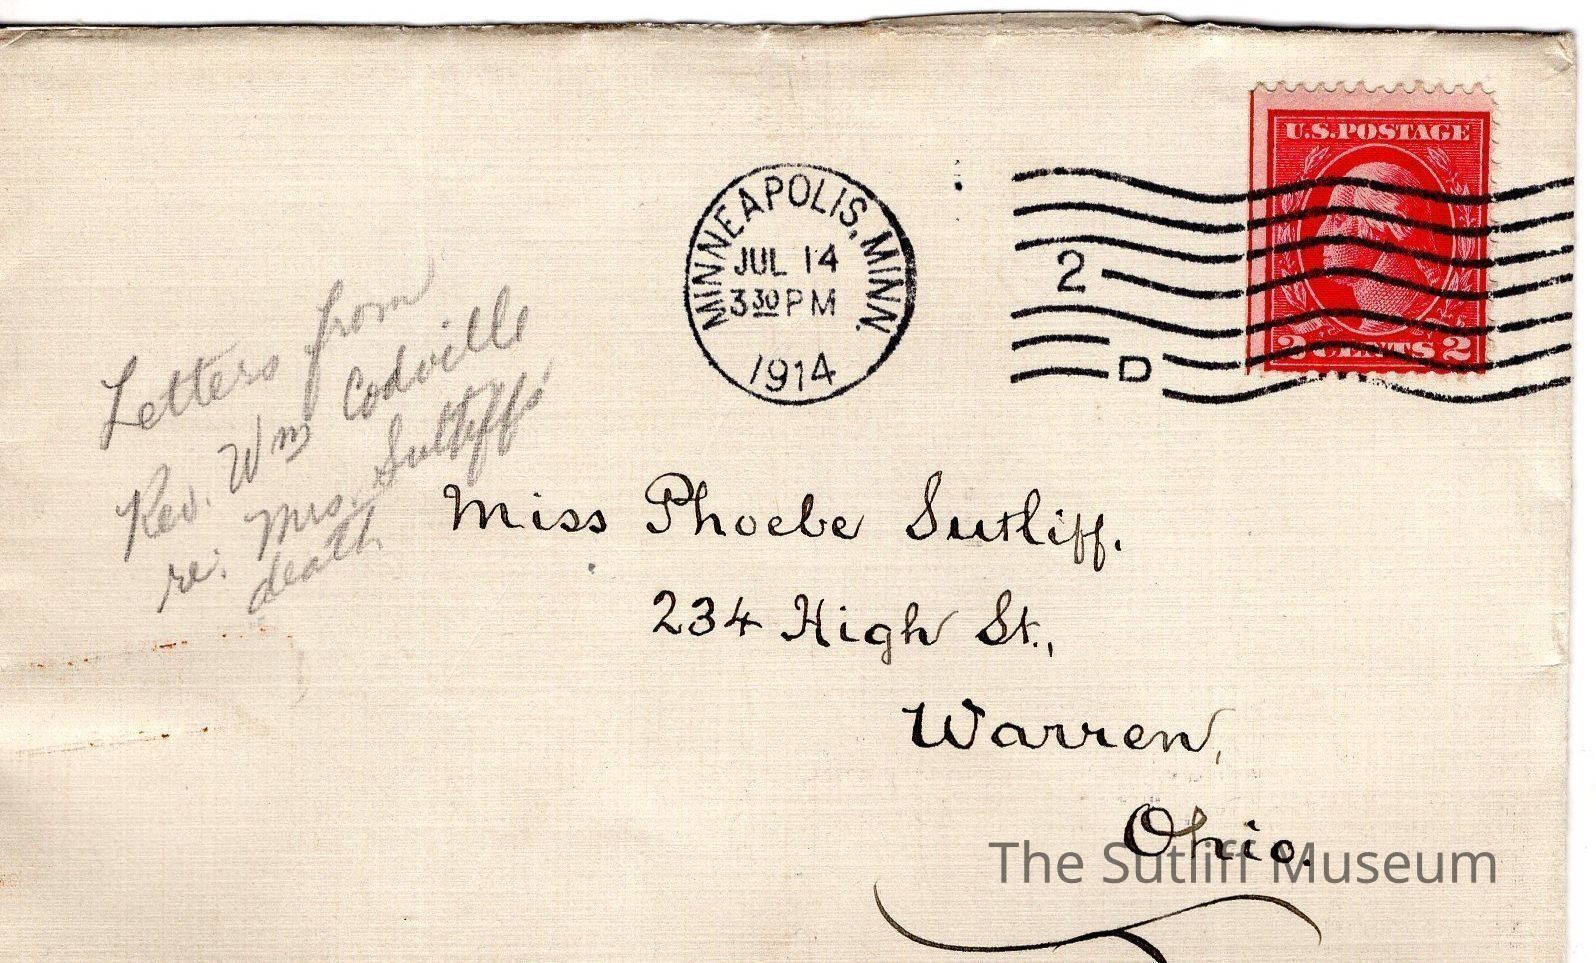 U.S. POSTAGE
2 CENTS 2
MINNEAPOLIS, MINN.
JUL 14
3 30 PM
1914
2
D
Letters from
Rev. Wm Codville
re: Mrs. Sutliff's
death
Miss Phoebe Sutliff.
234 High St.,
Warren,
Ohio.
The Sutliff Museum